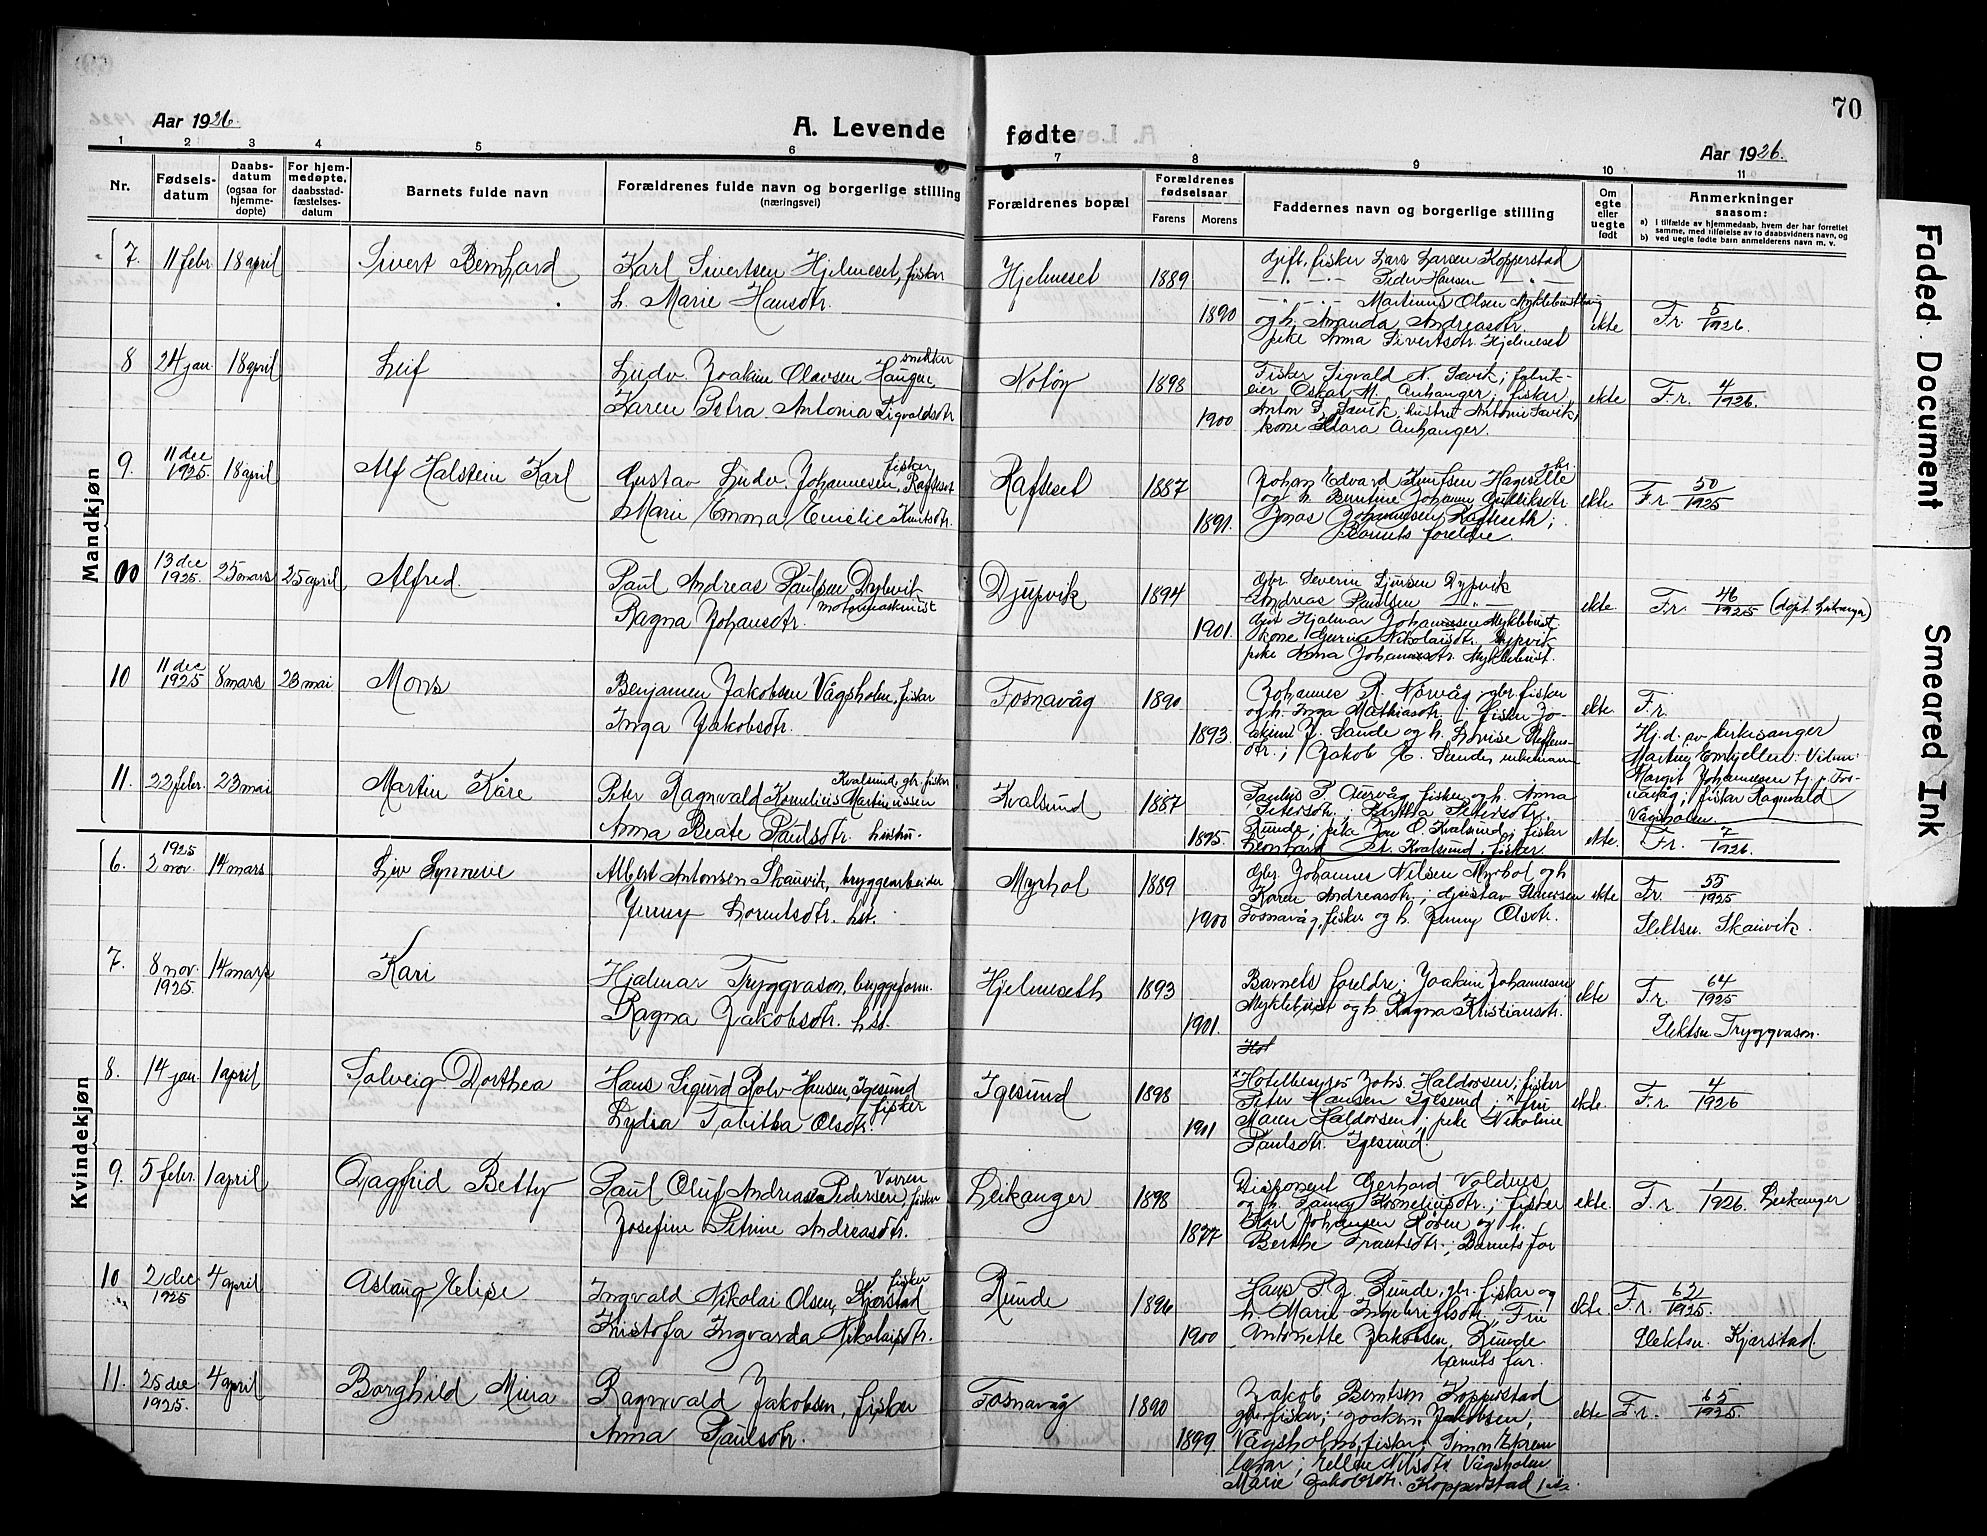 70
Aar 1926.
A. Levende fødte
Aar 1926.
1 2 3 4 5 6 7 8 9 10 11
Nr.
Fødsels-
datum
Daabs-
datum
(ogsaa for
hjemme-
døpte)
For hjem-
medøpte,
daabsstad-
fæstelses-
datum
Barnets fulde navn
Forældrenes fulde navn og borgerlige stilling
(næringsvei)
Forældrenes bopæl
Forældrenes
fødselsaar
Farens
Morens
Faddernes navn og borgerlige stilling
Om
egte
eller
uegte
født
Anmerkninger
saasom:
a) I tilfælde av hjemmedaab, hvem der har forrettet
samme, med tilføielse av to daabsvidners navn, og
b) ved uegte fødte barn anmelderens navn m. v.
Mandkjøn
7. 11 febr. 18 april Sivert Bernhard Karl Sivertsen Hjelmeset, fisker Hjelmeset 1889
h. Marie Hansdtr. 1890
Gift, fisker Lars Larsen Kopperstad
Peder Hansen
Martinus Olsen Myklebust
og h. Amanda Andreasdtr.
pike Anna Sivertsdtr. Hjelmeset
ekte Fr. 5/1926.
8 24 jan. 18 april Leif Ludv. Joakim Olavsen Haugen, snekker
Karen Petra Antonia Sigvaldsdtr
Notøy 1898 1900
Fisker Sigvald N. Sævik; fabrik-
eier Oskar M. Anhanger; fisker
Anton Sævik, hustru Antonie Sævik,
kone Klara Anhanger.
ekte F.r. 4/1926.
9. 11 dec 1925 18 april Alf Halstein Karl Gustav Ludv. Johannesen, Rafteset fisker
Marie Emma Emelie Knutsdtr.
Rafteset 1887 1891.
Johan Edvard Knutsen Hageselle gbr.
og h. Berntine Johanne
Jonas Johannesen Rafteseth;
Barnets foreldre.
ekte F.r 50/1925
10 13 dec 1925. 25 mars 25 april Alfred. Paul Andreas Paulsen Dypvik
motormaskinist
Ragna Johansdtr.
Djupvik 1894 1901.
Gbr. Severin Sjursen Dypvik
Andreas Paulsen
Gift Hjalmar Johannesen Myklebust
Kone Gurine Nikolaisdtr. Dypvik,
pike Anna Johannesdtr. Myklebust.
ekte Fr. 46/1925 (døpt Leikanger)
10 11 dec 1925 8 mars 23 mai Mons Benjamen Jakobsen Vågsholm, fisker
Inga Jakobsdtr.
Fosnavåg 1890 1893.
Johannes R. Nørvåg, gbr. fisker
og h. Inga Mathiasdtr. fisker Jo-
akim J. Sande og h. Lovise Steffens-
dtr.; Jakob Sande, unkemann
ekte. F.r.
Hj.d. av kirkesanger
Martin Emhjellen. Vidner
Margit Johannesen hj. p. Fos-
navåg; fisker Ragnvald
Vågsholm.
11. 22 febr. 23 mai Martin Kåre Peter Ragnvald Kornelius Martinussen
Kvalsund, gbr. fisker
Anna Beate Paulsdtr. hustru.
Kvalsund 1887 1895.
Paulus P. Aurvåg, fisker og h. Anna
Petersdtr.; Petersdtr.
Runde; pike Jon O. Kvalsund; fisker
Leonhard Kvalsund, fisker.
ekte. Fr. 7/1926.
Kvindekjøn
6. 1925 2 nov. 14 mars Liv Synneve Albert Antonsen Skauvik, bryggearbeider
Jenny Lorentsdtr. hst.
Myrhol 1889 1900
Gbr. Johannes Nilsen Myrhol og h
Karen Andreasdtr.; Gustav
Fosnavåg, fisker og h. Jenny Olsdtr.
ekte Fr. 55/1925
Slektsn. Skauvik.
7. 8 nov. 1925. 14 mars Kari Hjalmar Tryggvason, bryggeform.
Ragna Jakobsdtr. hst.
Hjelmeseth 1893 1901.
Barnets foreldre; Joakim Johannesen
Myklebust og h. Ragna Kristiansdtr.
Hot
ekte F.r. 64/1925
Slektsn. Tryggvason.
8. 14 jan. 1 april Solveig Dorthea Hans Sigurd Rolv Hansen, Igesund
fisker
Lydia Tabitha Olsdtr.
Igesund 1898 1901
Hotelbesyrer Johs. Haldorsen; fisker
Peter Hansen Igesund; fru
Maren Haldorsen; pike Nikoline
Paulsdtr. Igesund
ekte F.r 4/1926
9. 5 febr. 1 april Dagfrid Betty Paul Oluf Andreas Pedersen Vorren, fisker
Josefine Petrine Andreasdtr.
Leikanger 1898 1877
Disponent Gerhard Voldnes
og h. Fanny Korneliusdtr.; fisker
Karl Johansen Røren og h.
Berthe Frantsdtr.; Barnets far
ekte. F.r. 1/1926. Leikanger
10 2 dec 1925 4 april Aslaug Elise Ingvald Nikolai Olsen, Kjærstad
fisker
Kristofa Ingvarda Nikolaisdtr.
Runde 1896 1900
Hans P. J. Runde, gbr. fisker og
h. Marie Ingebrigtsdtr., Fru
Antonette Jakobsen, Runde
barnets far.
ekte F.r. 62/1925.
Slektsn. Kjærstad
11. 25 dec 1925. 4 april Borghild Mina Ragnvald Jakobsen, fisker
Anna Paulsdtr.
Fosnavåg 1890 1899
Jakob Berntsen Kopperstad
gbr. fisker; Joakim Jakobsen,
Vågsholm, fisker; Simon
Ellen Nilsdtr. Vågsholm
Marie Jakobsdtr. Kopperstad
ekte F.r. 65/1925.
Faded Document
Smeared Ink